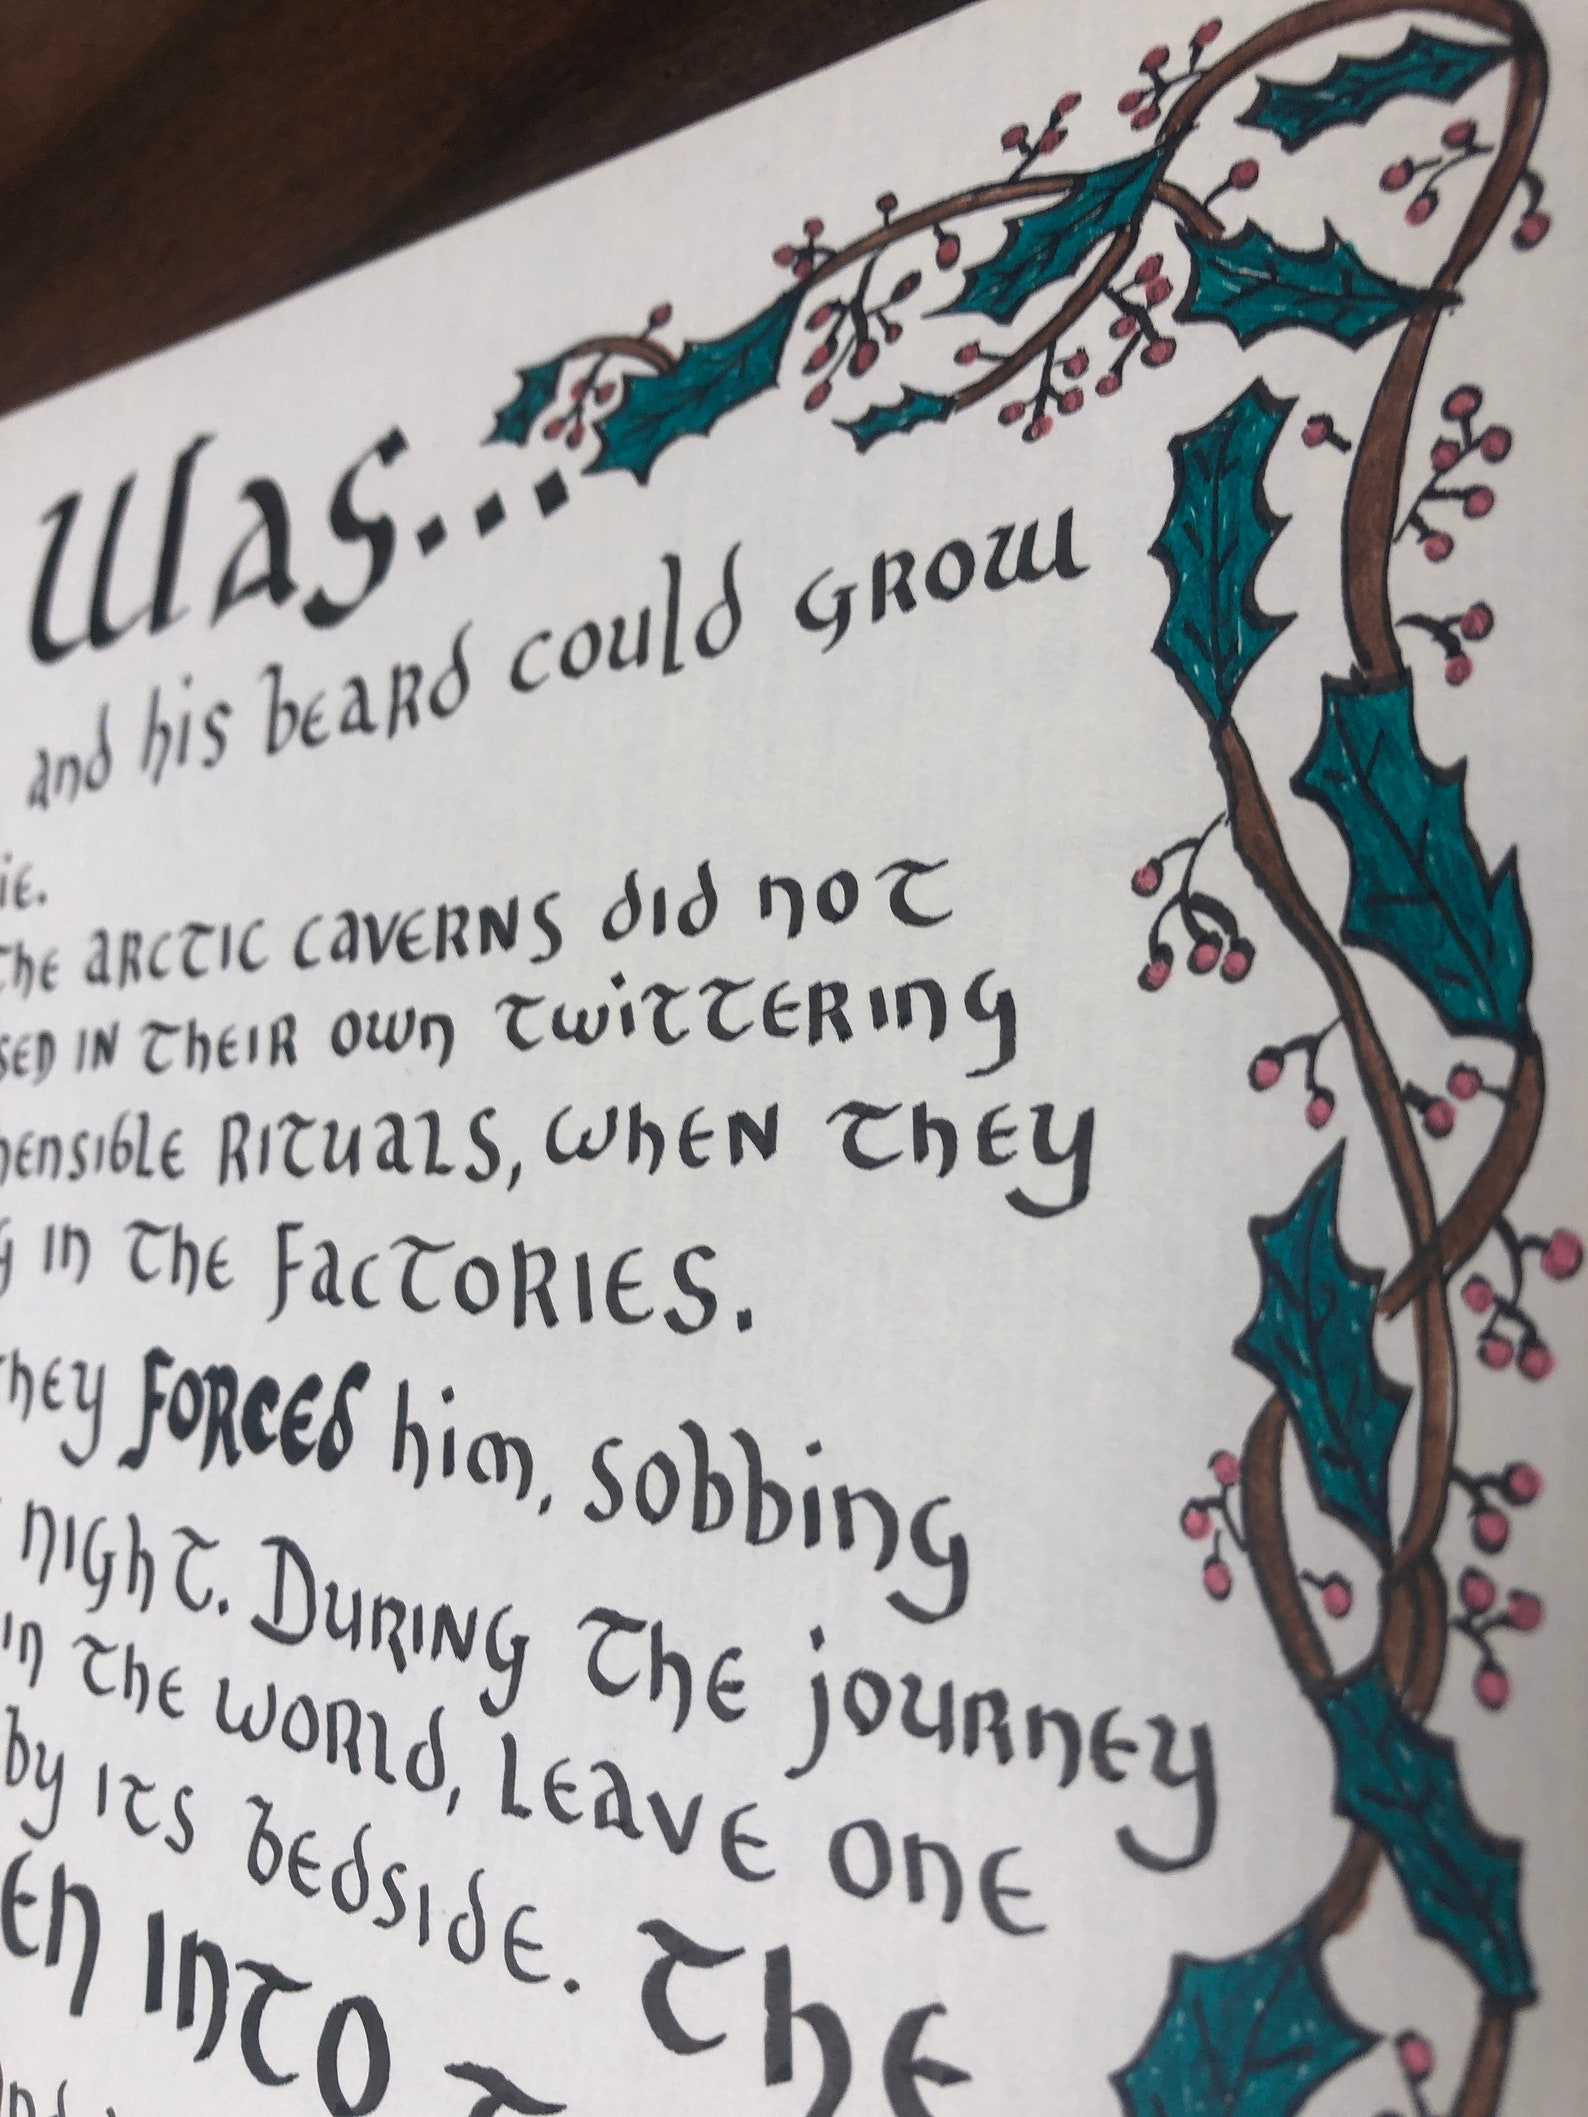 Was...
and his beard could grow
ie.
the arctic caverns did not
sed in their own twittering
hensible rituals, when they
in the factories.
they forced him, sobbing
night. During the journey
in the world, leave one
by its bedside. The
en into